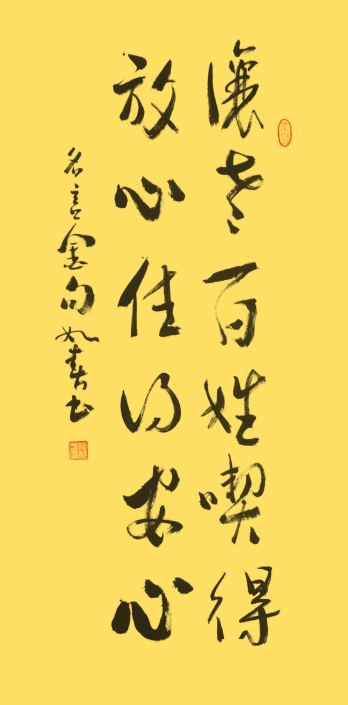 讓老百姓喫得
放心住得安心
名言金句 如 书